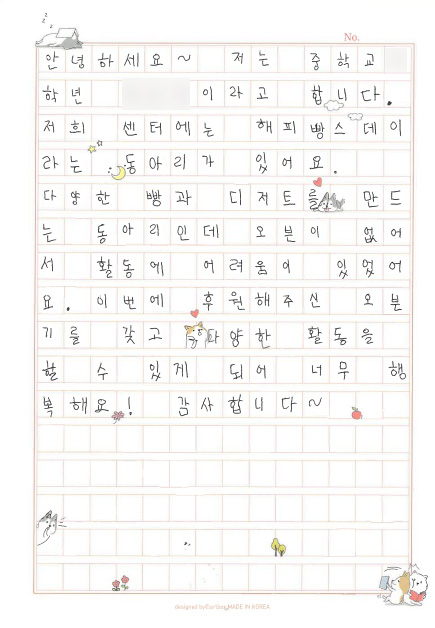 No.
안녕하세요~ 저는 중학교
학년 이라고 합니다.
저희 센터에는 해피빵스데이
라는 동아리가 있어요.
다양한 빵과 디저트를 만드
는 동아리인데 오븐이 없어
서 활동에 어려움이 있었어
요. 이번에 후원해주신 오븐
기를 갖고 다양한 활동을
할 수 있게 되어 너무 행
복해요! 감사합니다~
MADE IN KOREA